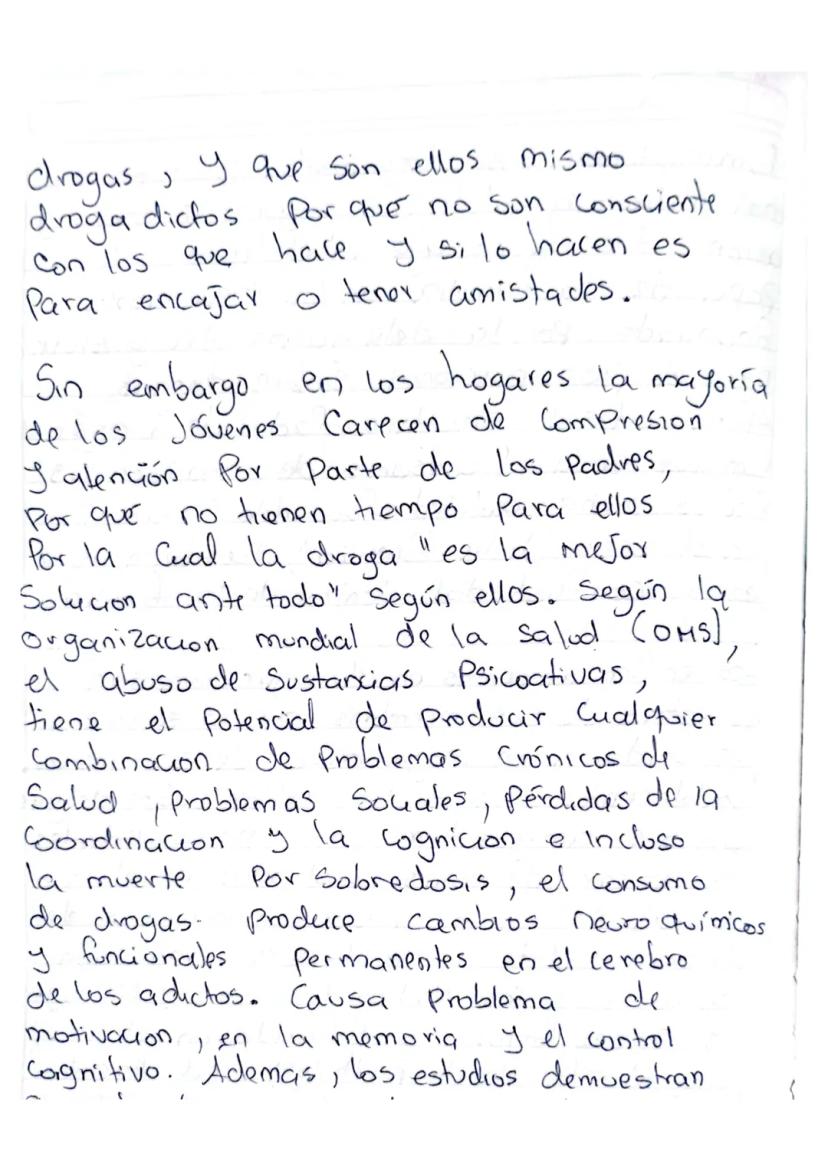 drogas, y que son ellos mismo
droga dictos por qué no son consciente
con los que hace y si lo hacen es
Para encajar o tener amistades.
Sin embargo en los hogares la mayoría
de los Jóvenes Carecen de Compresion
y atención Por Parte de los padres,
Por qué no tienen tiempo Para ellos
Por la Cual la droga "es la mejor
Solucion ante todo" Según ellos. Según la
organización mundial de la salud (OMS),
el abuso de Sustancias Psicoativas,
tiene el Potencial de Producir Cualquier
Combinacion de Problemas Crónicos de
Salud, Problemas Sociales, Pérdidas de la
Coordinacion y la Cognicion e incluso
la muerte Por Sobredosis, el consumo
de drogas. Produce cambios neuro químicos
y funcionales Permanentes en el cerebro
de los adictos. Causa Problema de
motivacion, en la memoria y el control
Cognitivo. Ademas, los estudios demuestran